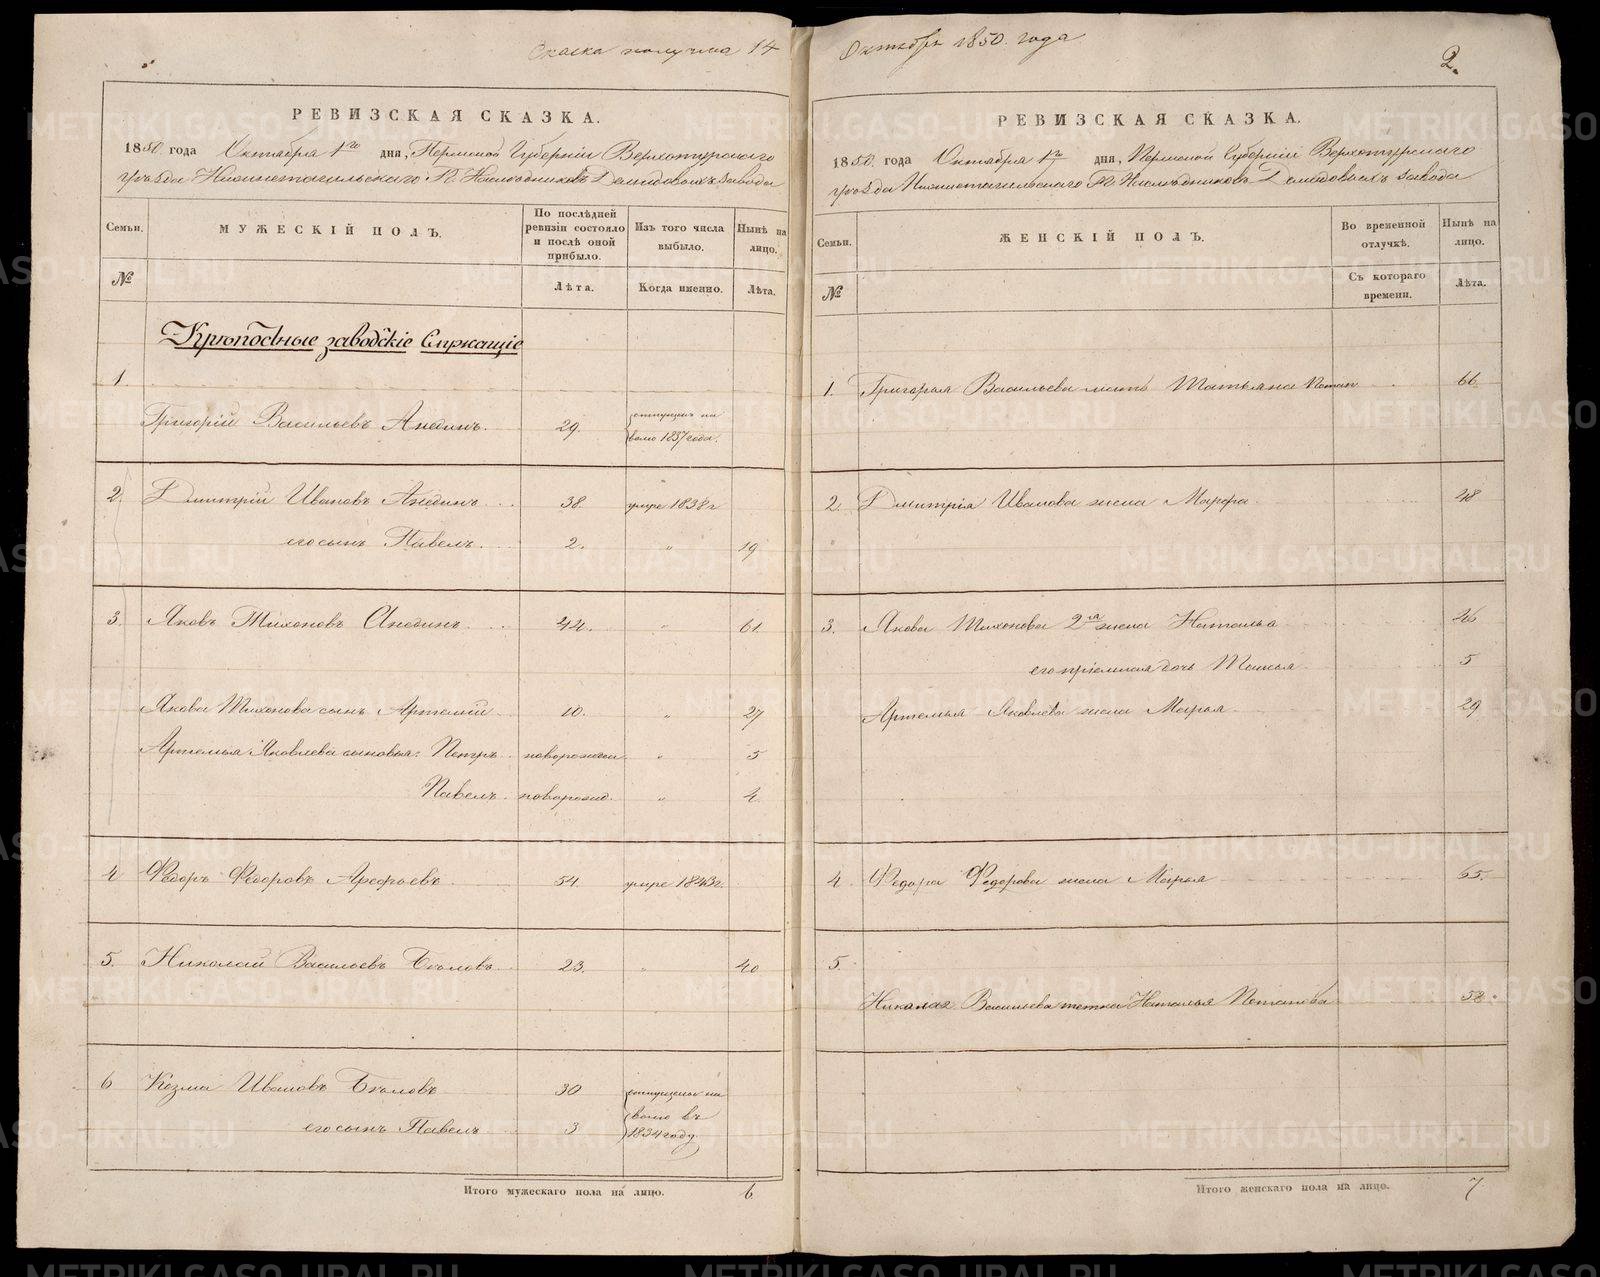 Сказка получена 14
РЕВИЗСКАЯ СКАЗКА.
1850 года Октября 1го дня, Пермской Губернии Верхотурского
уѣзда Нижнетагильского Гг. Наслѣдниковъ Демидовыхъ завода
Семьи.
МУЖЕСКІЙ ПОЛЪ.
По послѣдней ревизіи состояло и послѣ оной прибыло.
Изъ того числа выбыло.
Нынѣ на лицо.
№
Лѣта.
Когда именно.
Лѣта.
Крѣпостные заводскіе Служащіе
1.
Григорій Васильевъ 29. отпущенъ на
волю 1837 года.
2. Дмитрій Ивановъ 38. умре 1838 г
его сынъ Павелъ. 2. " 19
3. Яковъ Тихоновъ 44. " 61.
Якова Тихонова сынъ Артемій 10. " 27
Артемья Яковлева сыновья: Петръ новорожден. " 5
Павелъ новорожд. " 4.
4 Федоръ Федоровъ Арефьевъ 54. умре 1843 г.
5. Николай Васильевъ 23. " 40
6 Козма Ивановъ 30 отпущены на
волю въ
его сынъ Павелъ 3 1834 году.
Итого мужескаго пола на лицо. 6
Октября 1850. года
2.
РЕВИЗСКАЯ СКАЗКА.
1850. года Октября 1го дня, Пермской Губерніи Верхотурского
уѣзда Нижнетагильского Гг. Наслѣдниковъ Демидовыхъ завода
Семьи.
ЖЕНСКІЙ ПОЛЪ.
Во временной отлучкѣ.
Нынѣ на лицо.
№
Съ котораго времени.
Лѣта.
1. Григорья Васильева мать Татьяна Потап. 66
2. Дмитрія Иванова жена Марфа 48
3. Якова Тихонова 2я жена Наталья 46
его пріемная дочь 5
Артемья Яковлева жена Марья 29
4. Федора Федорова жена Марья 65.
5.
Николая Васильева тетка Наталья Потапова 58.
Итого женскаго пола на лицо. 7
METRIKI.GASO-URAL.RU